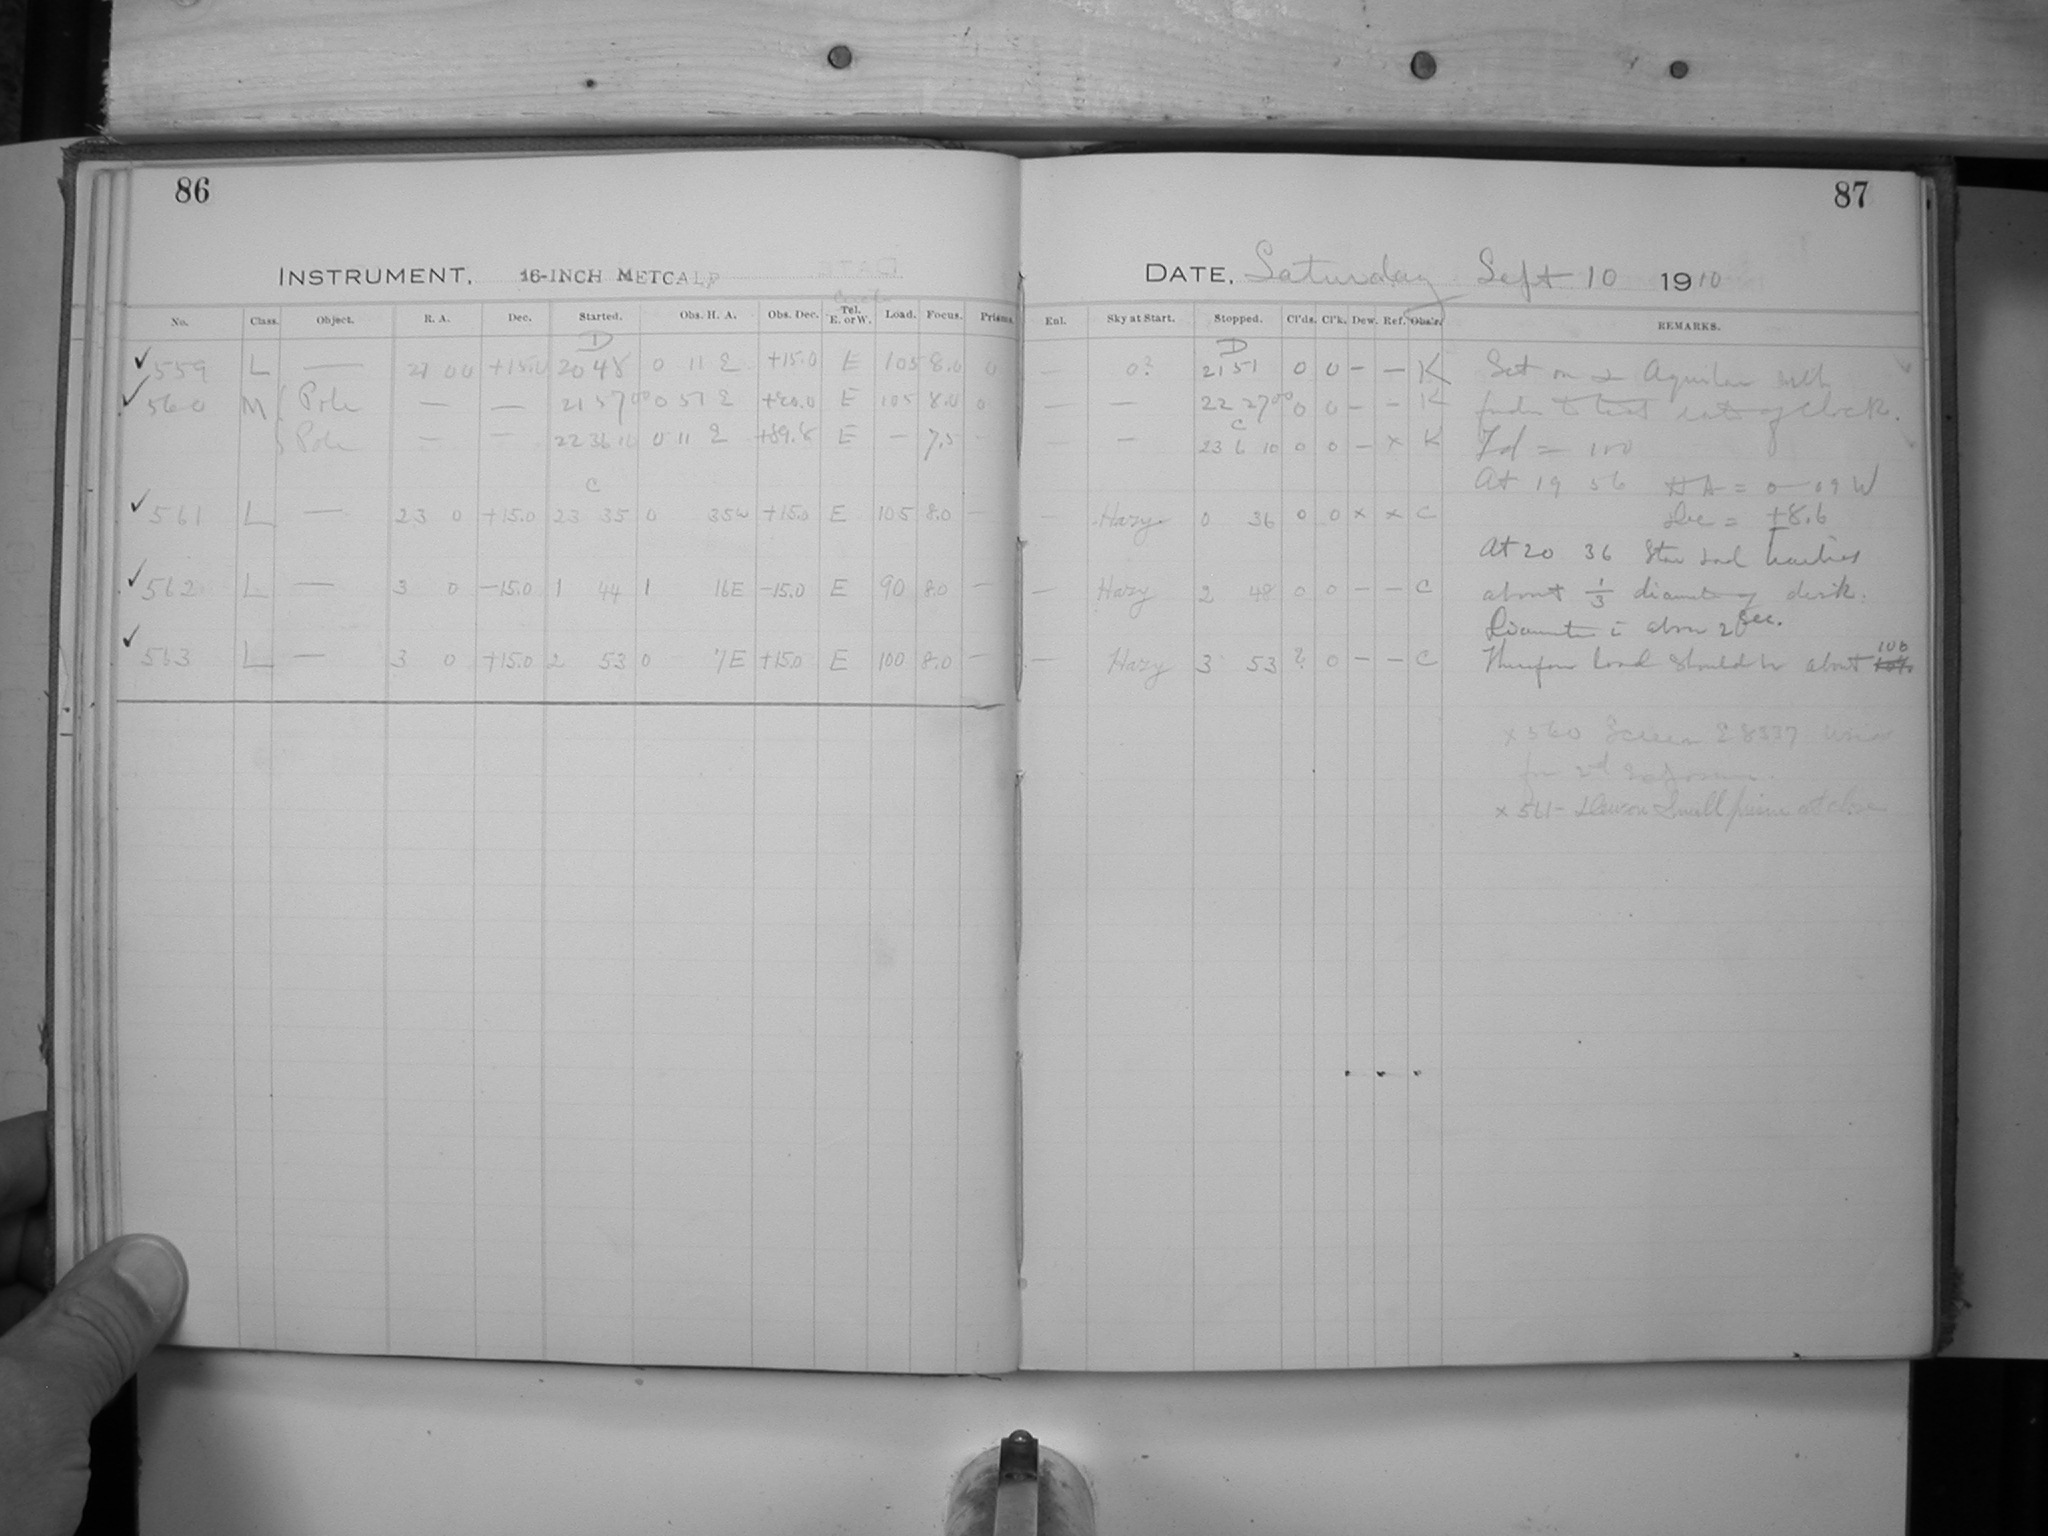 86
INSTRUMENT, 16-INCH METCALF
No. Class. Object. R. A. Dec. Started. Obs. H. A. Obs. Dec. Tel. E. or W. Load. Focus. Prisms.
D
559 L — 21 00 +15.0 20 48 0 11 E +15.0 E 105 8.0 0
560 M Pole — — 21 57 00 0 57 E E 105 8.0 0
Pole — — 22 36 10 0 11 E +89.8 E — 7.5 —
C
561 L — 23 0 +15.0 23 35 0 35W +15.0 E 105 8.0 —
562 L — 3 0 −15.0 1 44 1 16E −15.0 E 90 8.0 —
563 L — 3 0 +15.0 2 53 0 7E +15.0 E 100 8.0 —
87
DATE, Saturday Sept 10 1910
Enl. Sky at Start. Stopped. Cl'ds. Cl'k. Dew. Ref. Obs'r. REMARKS.
D
— 0? 21 51 0 0 — — K Set on α Aquilae with
— — 22 27 00 0 0 — — K finder to test rate of Clock.
C
— — 23 6 10 0 0 — x K = 100
At 19 56 HA = 0 09 W
— Hazy 0 36 0 0 x x C Dec = +8.6
At 20 36 Star had
— Hazy 2 48 0 0 — — C about 1/3 diameter of disk.
Diameter is about 2 sec.
— Hazy 3 53 ? 0 — — C Therefore load should be about 100
x 560 Screen E 8337 used
for 2d Exposure.
x 561 - Dew on small prism at close